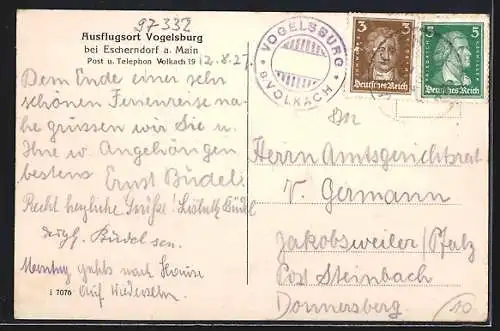 97-332
Ausflugsort Vogelsburg
bei Escherndorf a. Main
Post u. Telephon Volkach 19
12.8.27.
Dem Ende einer sehr
schönen Ferienreise na-
he grüssen wir Sie u.
Ihre w. Angehörigen
bestens Ernst Büdel
Recht herzliche Grüße!
Büdel sen.
Montag gehts nach Hause
Auf Wiedersehn.
i 7076
VOGELSBURG
B. VOLKACH
3 3
Deutsches Reich
5 5
Deutsches Reich
An
Herrn Amtsgerichtsrat
V. Germann
Jakobsweiler/Pfalz
Post Steinbach
Donnersberg.
10